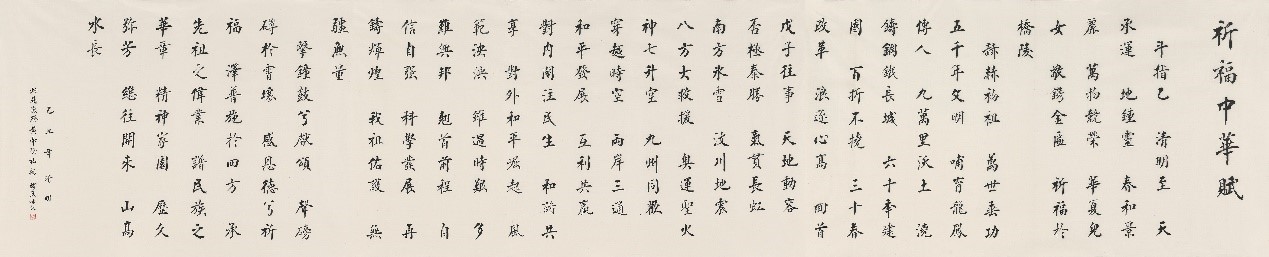 祈福中華賦
斗指乙 清明至 天
承運 地鍾靈 春和景
麗 萬物競榮 華夏兒
女 敬鑄金匾 祈福於
橋陵
赫赫始祖 萬世垂功
五千年文明 哺育龍鳳
傳人 九萬里沃土 澆
鑄鋼鐵長城 六十年建
國 百折不撓 三十春
改革 浪逐心高 回首
戊子往事 天地動容
否極泰勝 氣貫長虹
南方氷雪 汶川地震
八方大救援 奧運聖火
神七升空 九州同歡
穿越時空 兩岸三通
和平發展 互利共贏
對内關注民生 和諧共
享 對外和平崛起 風
範泱泱 雖遇時艱 多
難興邦 勉首前程 自
信自强 科學發展 再
鑄輝煌 我祖佑護 無
疆無量
擊鐘鼓兮獻頌 聲磅
礴於霄壤 感恩德兮祈
福 澤普施於四方 承
先祖之偉業 譜民族之
華章 精神家園 歷久
弥芳 繼往開來 山高
水長
乙丑年清明